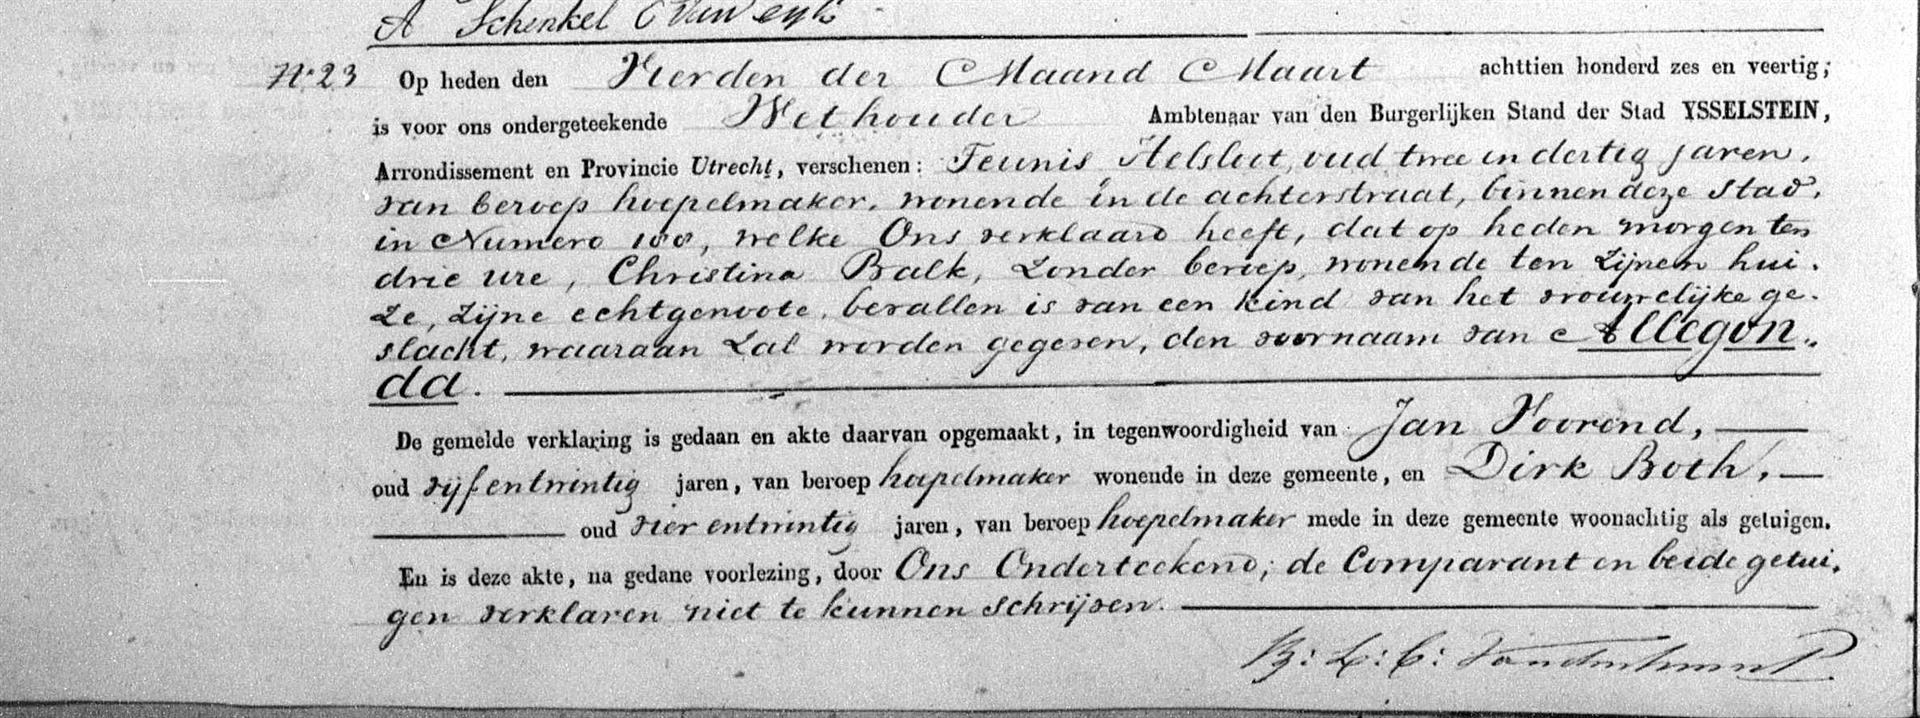 A Schenkel C Van Eyk
No 23 Op heden den Vierden der Maand Maart achttien honderd zes en veertig;
is voor ons ondergeteekende Wethouder Ambtenaar van den Burgerlijken Stand der Stad YSSELSTEIN,
Arrondissement en Provincie Utrecht, verschenen: Teunis Helsloot, oud twee en dertig jaren,
van beroep hoepelmaker, wonende in de achterstraat, binnen deze Stad,
in Numero 100, welke Ons verklaard heeft, dat op heden morgen ten
drie ure, Christina Balk, zonder beroep, wonende ten zijnen hui-
ze, zijne echtgenoote, bevallen is van een kind van het vrouwelijke ge-
slacht, waaraan zal worden gegeven, den voornaam van Allegon-
da.
De gemelde verklaring is gedaan en akte daarvan opgemaakt, in tegenwoordigheid van Jan Voorend,
oud vijfentwintig jaren, van beroep hoepelmaker wonende in deze gemeente, en Dirk Both,
oud vier entwintig jaren, van beroep hoepelmaker mede in deze gemeente woonachtig als getuigen.
En is deze akte, na gedane voorlezing, door Ons Onderteekend; de Comparant en beide getui-
gen verklaren niet te kunnen schrijven.
B: L: C: